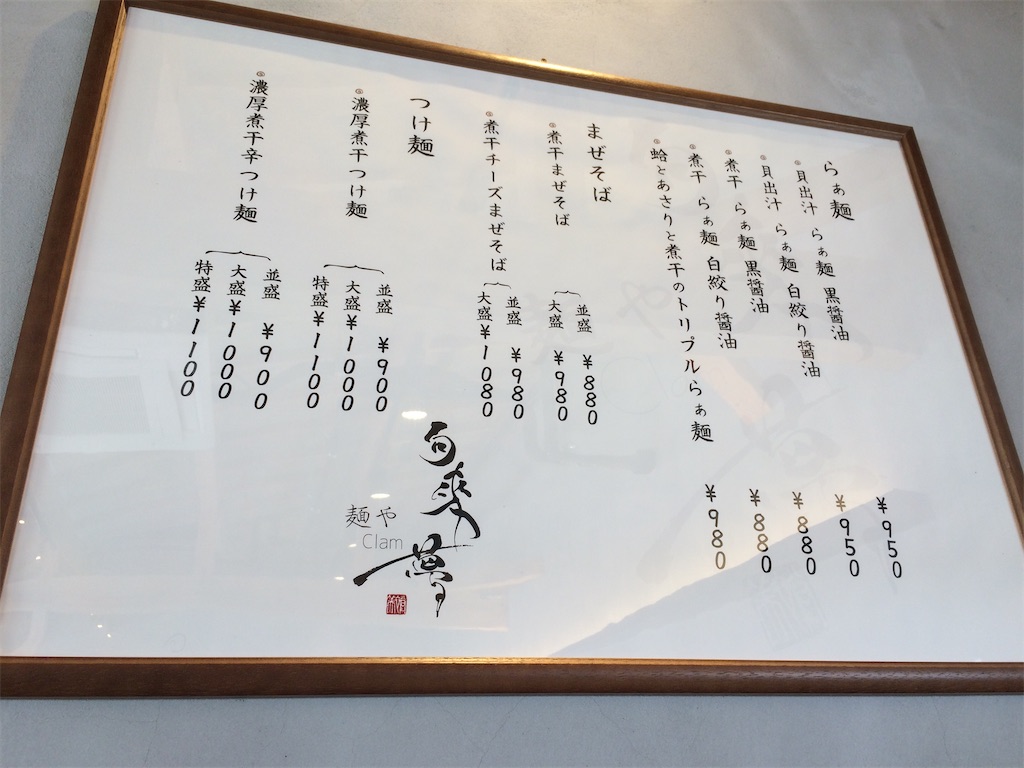 らぁ麺
貝出汁 らぁ麺 黒醤油 ¥950
貝出汁 らぁ麺 白絞り醤油 ¥950
煮干 らぁ麺 黒醤油 ¥880
煮干 らぁ麺 白絞り醤油 ¥880
蛤とあさりと煮干のトリプルらぁ麺 ¥980
まぜそば
煮干まぜそば
並盛 ¥880
大盛 ¥980
煮干チーズまぜそば
並盛 ¥980
大盛 ¥1080
つけ麺
濃厚煮干つけ麺
並盛 ¥900
大盛 ¥1000
特盛 ¥1100
濃厚煮干辛つけ麺
並盛 ¥900
大盛 ¥1000
特盛 ¥1100
麺や
Clam